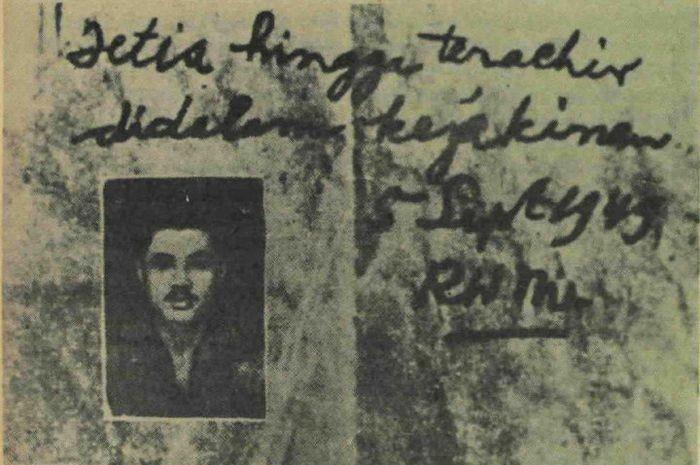 Setia hingga terachir
didalam kejakinan..
5 Sept 1949
RW